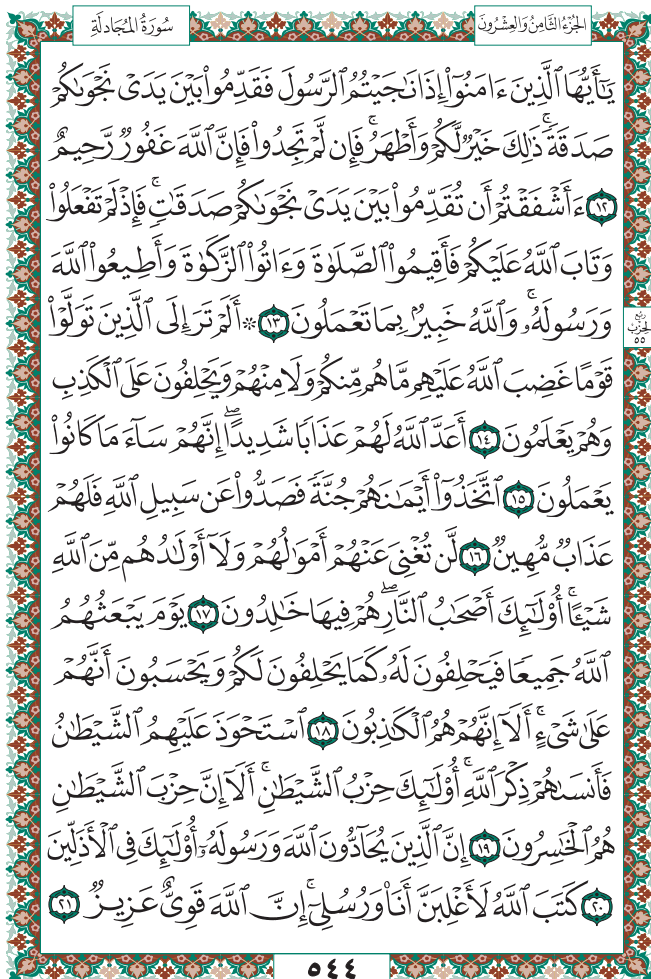 الجُزْءُ الثَّامِنُ وَالعِشْرُونَ
سُورَةُ المُجَادلَةِ
يَـٰٓأَيُّهَا ٱلَّذِينَ ءَامَنُوٓا۟ إِذَا نَـٰجَيْتُمُ ٱلرَّسُولَ فَقَدِّمُوا۟ بَيْنَ يَدَىْ نَجْوَىٰكُمْ
صَدَقَةً ۚ ذَٰلِكَ خَيْرٌ لَّكُمْ وَأَطْهَرُ ۚ فَإِن لَّمْ تَجِدُوا۟ فَإِنَّ ٱللَّهَ غَفُورٌ رَّحِيمٌ
١٢ ءَأَشْفَقْتُمْ أَن تُقَدِّمُوا۟ بَيْنَ يَدَىْ نَجْوَىٰكُمْ صَدَقَـٰتٍ ۚ فَإِذْ لَمْ تَفْعَلُوا۟
وَتَابَ ٱللَّهُ عَلَيْكُمْ فَأَقِيمُوا۟ ٱلصَّلَوٰةَ وَءَاتُوا۟ ٱلزَّكَوٰةَ وَأَطِيعُوا۟ ٱللَّهَ
وَرَسُولَهُۥ ۚ وَٱللَّهُ خَبِيرٌۢ بِمَا تَعْمَلُونَ ١٣ ۞ أَلَمْ تَرَ إِلَى ٱلَّذِينَ تَوَلَّوْا۟
قَوْمًا غَضِبَ ٱللَّهُ عَلَيْهِم مَّا هُم مِّنكُمْ وَلَا مِنْهُمْ وَيَحْلِفُونَ عَلَى ٱلْكَذِبِ
وَهُمْ يَعْلَمُونَ ١٤ أَعَدَّ ٱللَّهُ لَهُمْ عَذَابًا شَدِيدًا ۖ إِنَّهُمْ سَآءَ مَا كَانُوا۟
يَعْمَلُونَ ١٥ ٱتَّخَذُوٓا۟ أَيْمَـٰنَهُمْ جُنَّةً فَصَدُّوا۟ عَن سَبِيلِ ٱللَّهِ فَلَهُمْ
عَذَابٌ مُّهِينٌ ١٦ لَّن تُغْنِىَ عَنْهُمْ أَمْوَٰلُهُمْ وَلَآ أَوْلَـٰدُهُم مِّنَ ٱللَّهِ
شَيْـًٔا ۚ أُو۟لَـٰٓئِكَ أَصْحَـٰبُ ٱلنَّارِ ۖ هُمْ فِيهَا خَـٰلِدُونَ ١٧ يَوْمَ يَبْعَثُهُمُ
ٱللَّهُ جَمِيعًا فَيَحْلِفُونَ لَهُۥ كَمَا يَحْلِفُونَ لَكُمْ وَيَحْسَبُونَ أَنَّهُمْ
عَلَىٰ شَىْءٍ ۚ أَلَآ إِنَّهُمْ هُمُ ٱلْكَـٰذِبُونَ ١٨ ٱسْتَحْوَذَ عَلَيْهِمُ ٱلشَّيْطَـٰنُ
فَأَنسَىٰهُمْ ذِكْرَ ٱللَّهِ ۚ أُو۟لَـٰٓئِكَ حِزْبُ ٱلشَّيْطَـٰنِ ۚ أَلَآ إِنَّ حِزْبَ ٱلشَّيْطَـٰنِ
هُمُ ٱلْخَـٰسِرُونَ ١٩ إِنَّ ٱلَّذِينَ يُحَآدُّونَ ٱللَّهَ وَرَسُولَهُۥٓ أُو۟لَـٰٓئِكَ فِى ٱلْأَذَلِّينَ
٢٠ كَتَبَ ٱللَّهُ لَأَغْلِبَنَّ أَنَا۠ وَرُسُلِىٓ ۚ إِنَّ ٱللَّهَ قَوِىٌّ عَزِيزٌ ٢١
ربع
الحِزْب
٥٥
٥٤٤